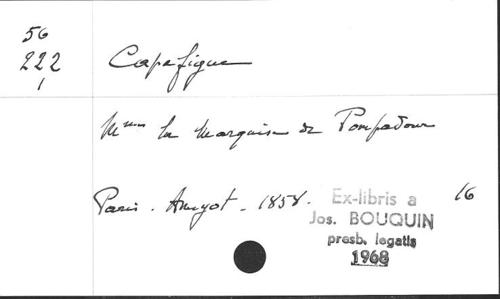 56
222
1
Capefigue
Mme la Marquise de Pompadour
Paris. Amyot. 1858. 16
Ex-libris a
Jos. BOUQUIN
presb. legatis
1968